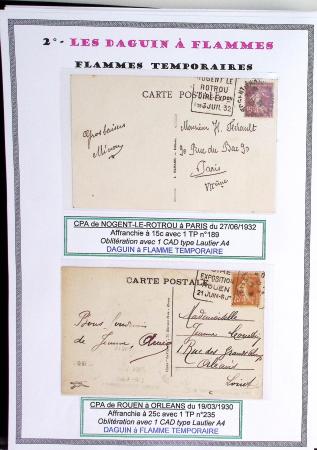 2°- LES DAGUIN À FLAMMES
FLAMMES TEMPORAIRES
NOGENT LE
ROTROU
3 JUIL 32
CARTE POSTALE
Monsieur H.
Rue du Bac 93
Paris
CPA de NOGENT-LE-ROTROU à PARIS du 27/06/1932
Affranchie à 15c avec 1 TP n°189
Oblitération avec 1 CAD type Lautier A4
DAGUIN à FLAMME TEMPORAIRE
CARTE POSTALE
EXPOSITION
ROUEN
21 JUIN
Bons
de Jeanne
Mademoiselle
Jeanne
Rue des
Orléans
Loiret
CPA de ROUEN à ORLEANS du 19/03/1930
Affranchie à 25c avec 1 TP n°235
Oblitération avec 1 CAD type Lautier A4
DAGUIN à FLAMME TEMPORAIRE